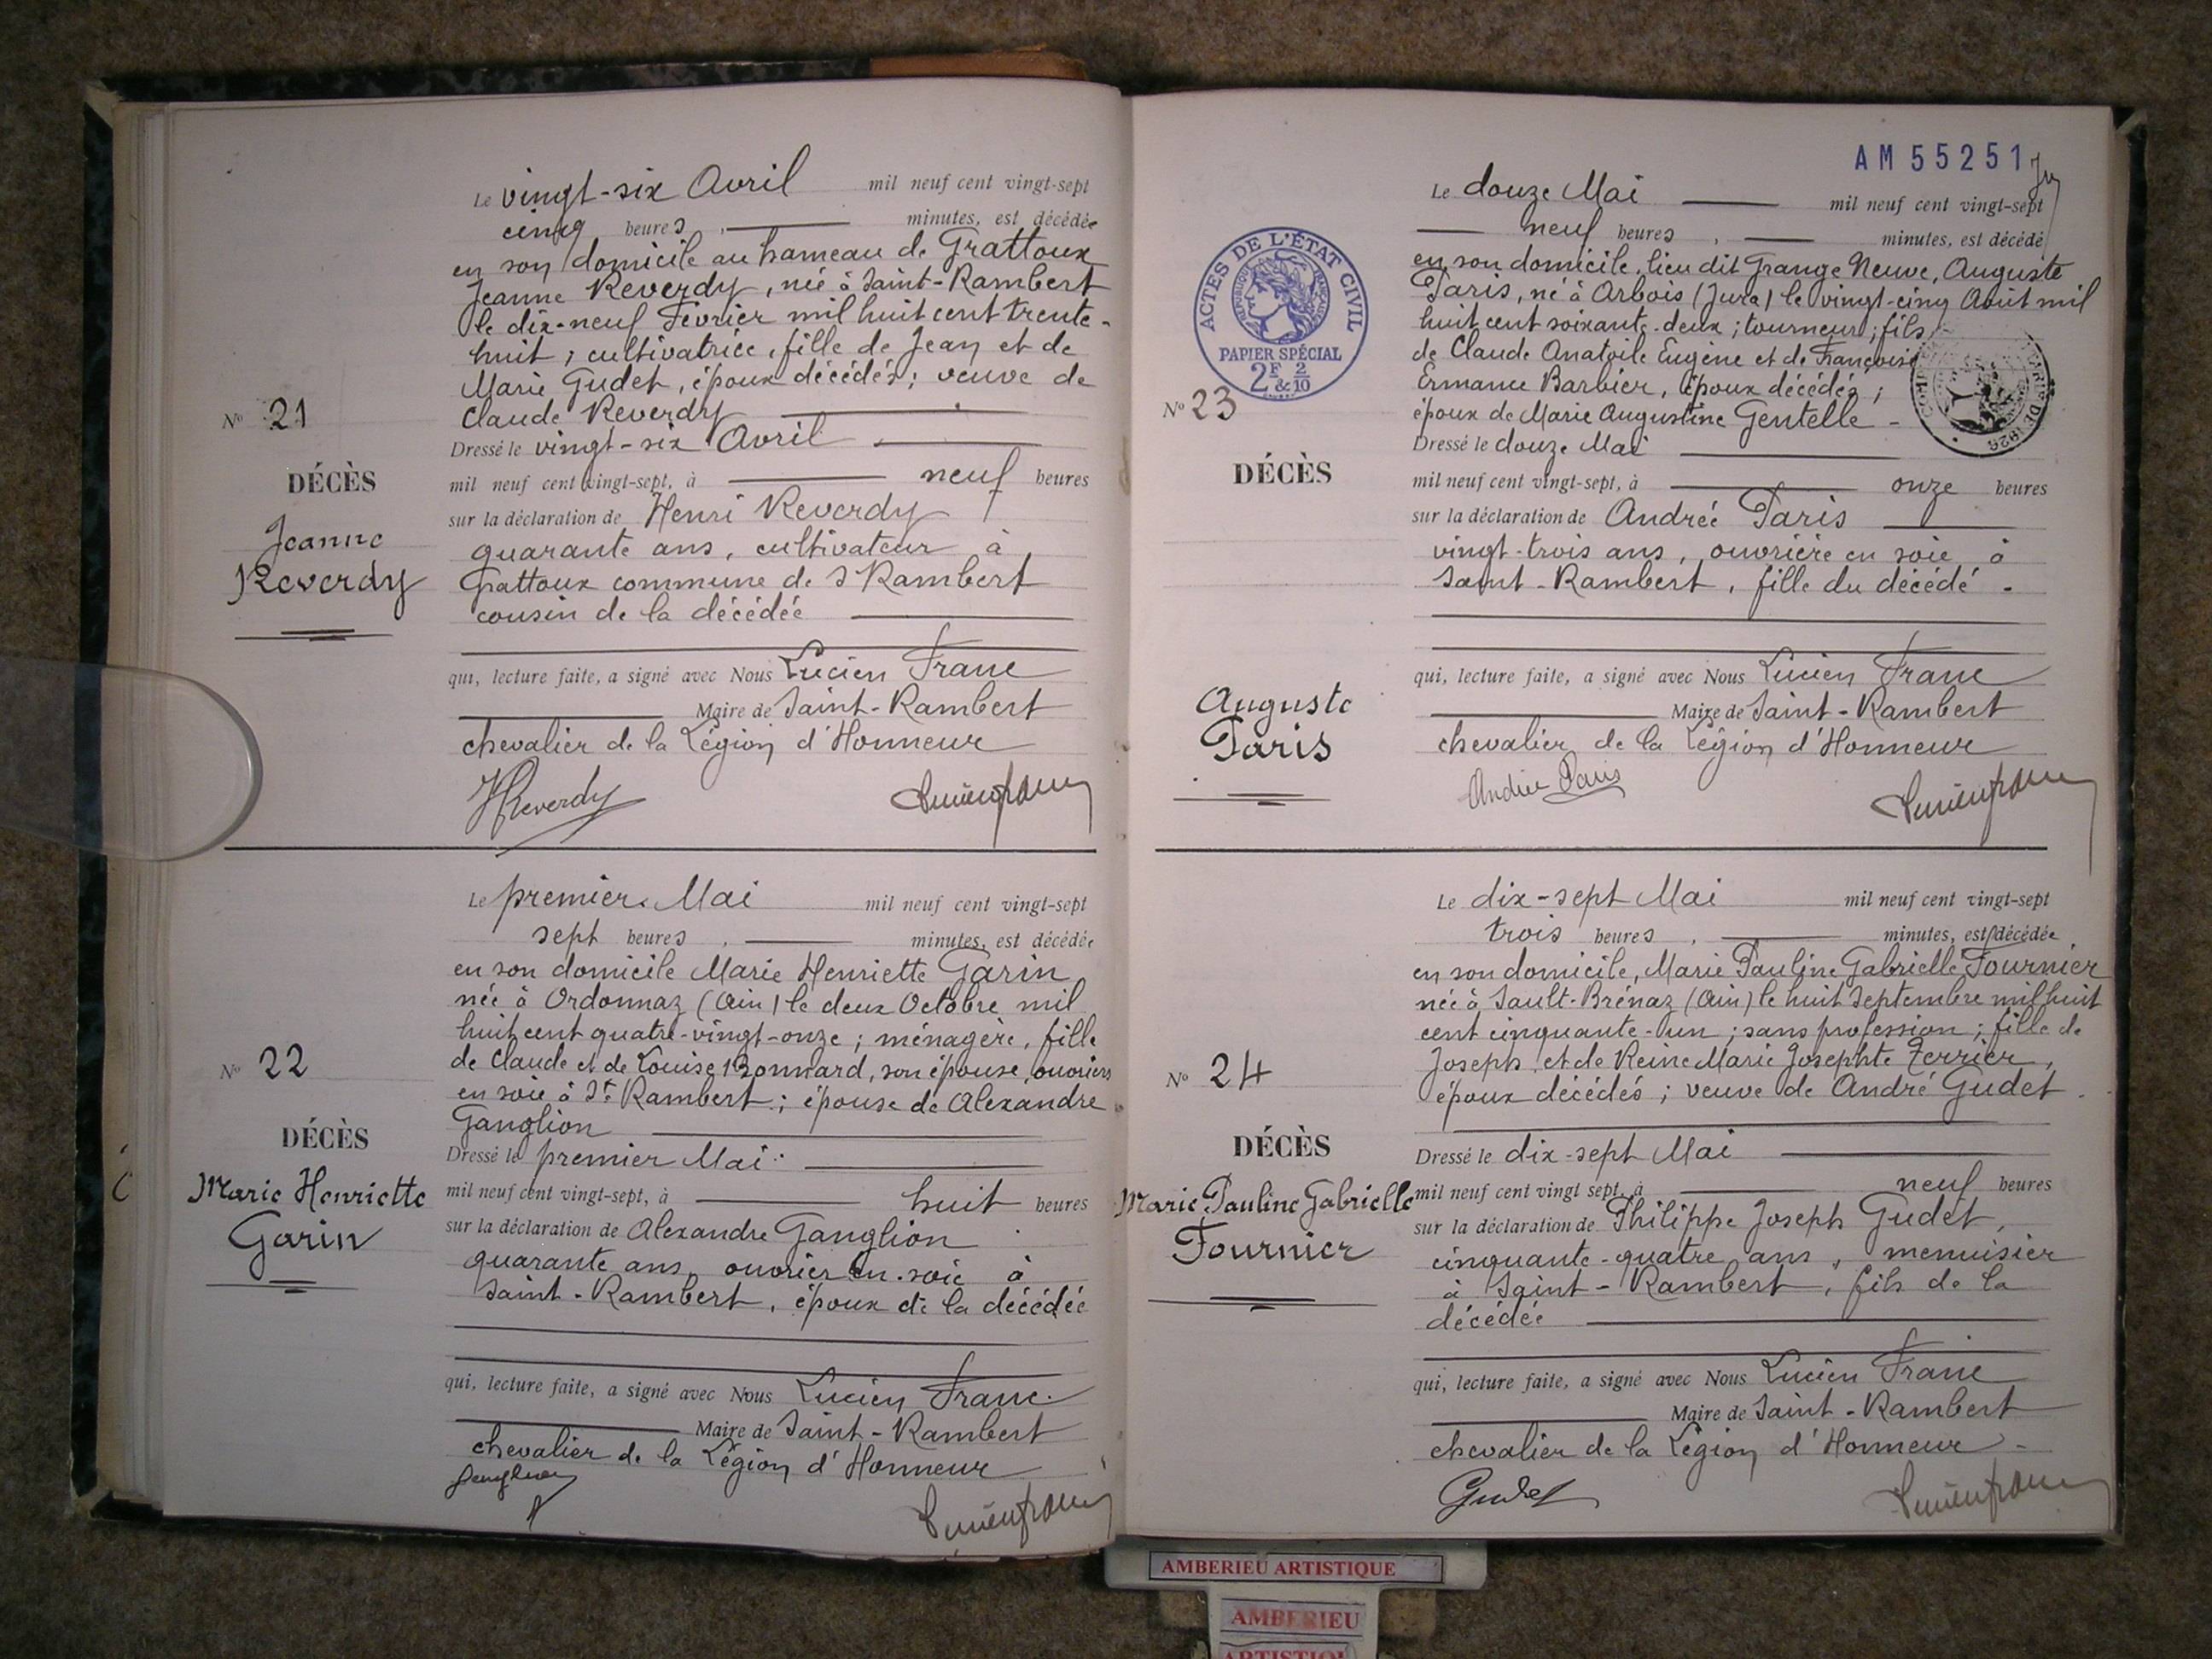 Le vingt-six Avril mil neuf cent vingt-sept
cinq heures, minutes, est décédée
en son domicile au hameau de Grattoux
Jeanne Reverdy, née à Saint-Rambert
le dix-neuf Février mil huit cent trente-
huit ; cultivatrice, fille de Jean et de
Marie Gudet, époux décédés ; veuve de
Claude Reverdy
Dressé le vingt-six Avril
mil neuf cent vingt-sept, à neuf heures
sur la déclaration de Henri Reverdy
quarante ans, cultivateur à
Grattoux commune de St Rambert
cousin de la décédée
qui, lecture faite, a signé avec Nous Lucien Franc
Maire de Saint-Rambert
chevalier de la Légion d'Honneur
HReverdy Lucien franc
No 21
DÉCÈS
Jeanne
Reverdy
Le premier Mai mil neuf cent vingt-sept
sept heures, minutes, est décédée
en son domicile Marie Henriette Garin
née à Ordonnaz (Ain) le deux Octobre mil
huit cent quatre-vingt-onze ; ménagère, fille
de Claude et de Louise Bonnard, son épouse, ouvriers
en soie à St Rambert ; épouse de Alexandre
Ganglion
Dressé le premier Mai
mil neuf cent vingt-sept, à huit heures
sur la déclaration de Alexandre Ganglion
quarante ans, ouvrier en soie à
Saint-Rambert, époux de la décédée
qui, lecture faite, a signé avec Nous Lucien Franc
Maire de Saint-Rambert
chevalier de la Légion d'Honneur
Ganglion
Lucien franc
No 22
DÉCÈS
Marie Henriette
Garin
AM 55251
ACTES DE L'ÉTAT CIVIL
RÉPUBLIQUE FRANÇAISE
PAPIER SPÉCIAL
2F & 2/10
Le douze Mai mil neuf cent vingt-sept
neuf heures, minutes, est décédé
en son domicile, lieu dit Grange Neuve, Auguste
Paris, né à Arbois (Jura) le vingt-cinq Août mil
huit cent soixante-deux ; tourneur ; fils
de Claude Anatoile Eugène et de Françoise
Ermance Barbier, époux décédés ;
époux de Marie Augustine Gentelle -
Dressé le douze Mai
mil neuf cent vingt-sept, à onze heures
sur la déclaration de Andrée Paris
vingt-trois ans, ouvrière en soie à
Saint-Rambert, fille du décédé -
qui, lecture faite, a signé avec Nous Lucien Franc
Maire de Saint-Rambert
chevalier de la Légion d'Honneur
Andrée Paris Lucien franc
No 23
DÉCÈS
Auguste
Paris
DE 1926
Le dix-sept Mai mil neuf cent vingt-sept
trois heures, minutes, est décédée
en son domicile, Marie Pauline Gabrielle Fournier
née à Sault-Brénaz (Ain) le huit Septembre mil huit
cent cinquante-un ; sans profession ; fille de
Joseph et de Reine Marie Josephte Terrier,
époux décédés ; veuve de André Gudet
Dressé le dix-sept Mai
mil neuf cent vingt sept, à neuf heures
sur la déclaration de Philippe Joseph Gudet,
cinquante-quatre ans, menuisier
à Saint-Rambert, fils de la
décédée
qui, lecture faite, a signé avec Nous Lucien Franc
Maire de Saint-Rambert
chevalier de la Légion d'Honneur -
Gudet Lucien franc
No 24
DÉCÈS
Marie Pauline Gabrielle
Fournier
AMBERIEU ARTISTIQUE
AMBERIEU
ARTISTIQUE